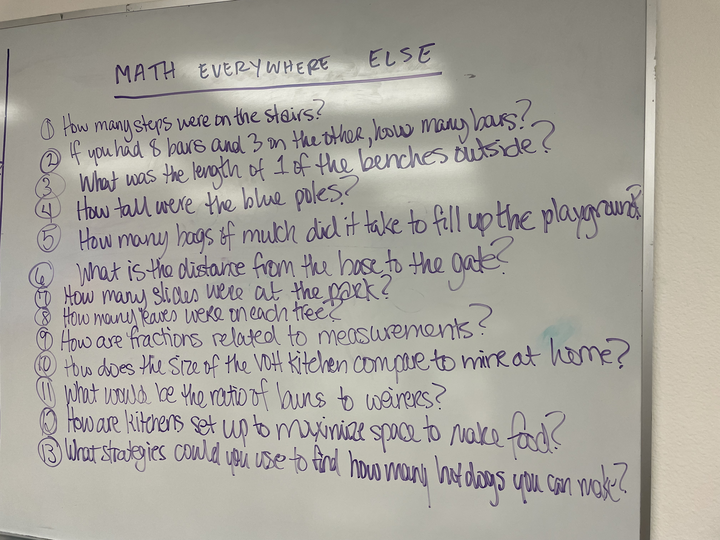 MATH EVERYWHERE ELSE
① How many steps were on the stairs?
② If you had 8 bars and 3 on the other, how many bars?
③ What was the length of 1 of the benches outside?
④ How tall were the blue poles?
⑤ How many bags of mulch did it take to fill up the playground?
⑥ What is the distance from the base to the gate?
⑦ How many slides were at the park?
⑧ How many leaves were on each tree?
⑨ How are fractions related to measurements?
⑩ How does the size of the VOH kitchen compare to mine at home?
⑪ What would be the ratio of buns to weiners?
⑫ How are kitchens set up to maximize space to make food?
⑬ What strategies could you use to find how many hotdogs you can make?